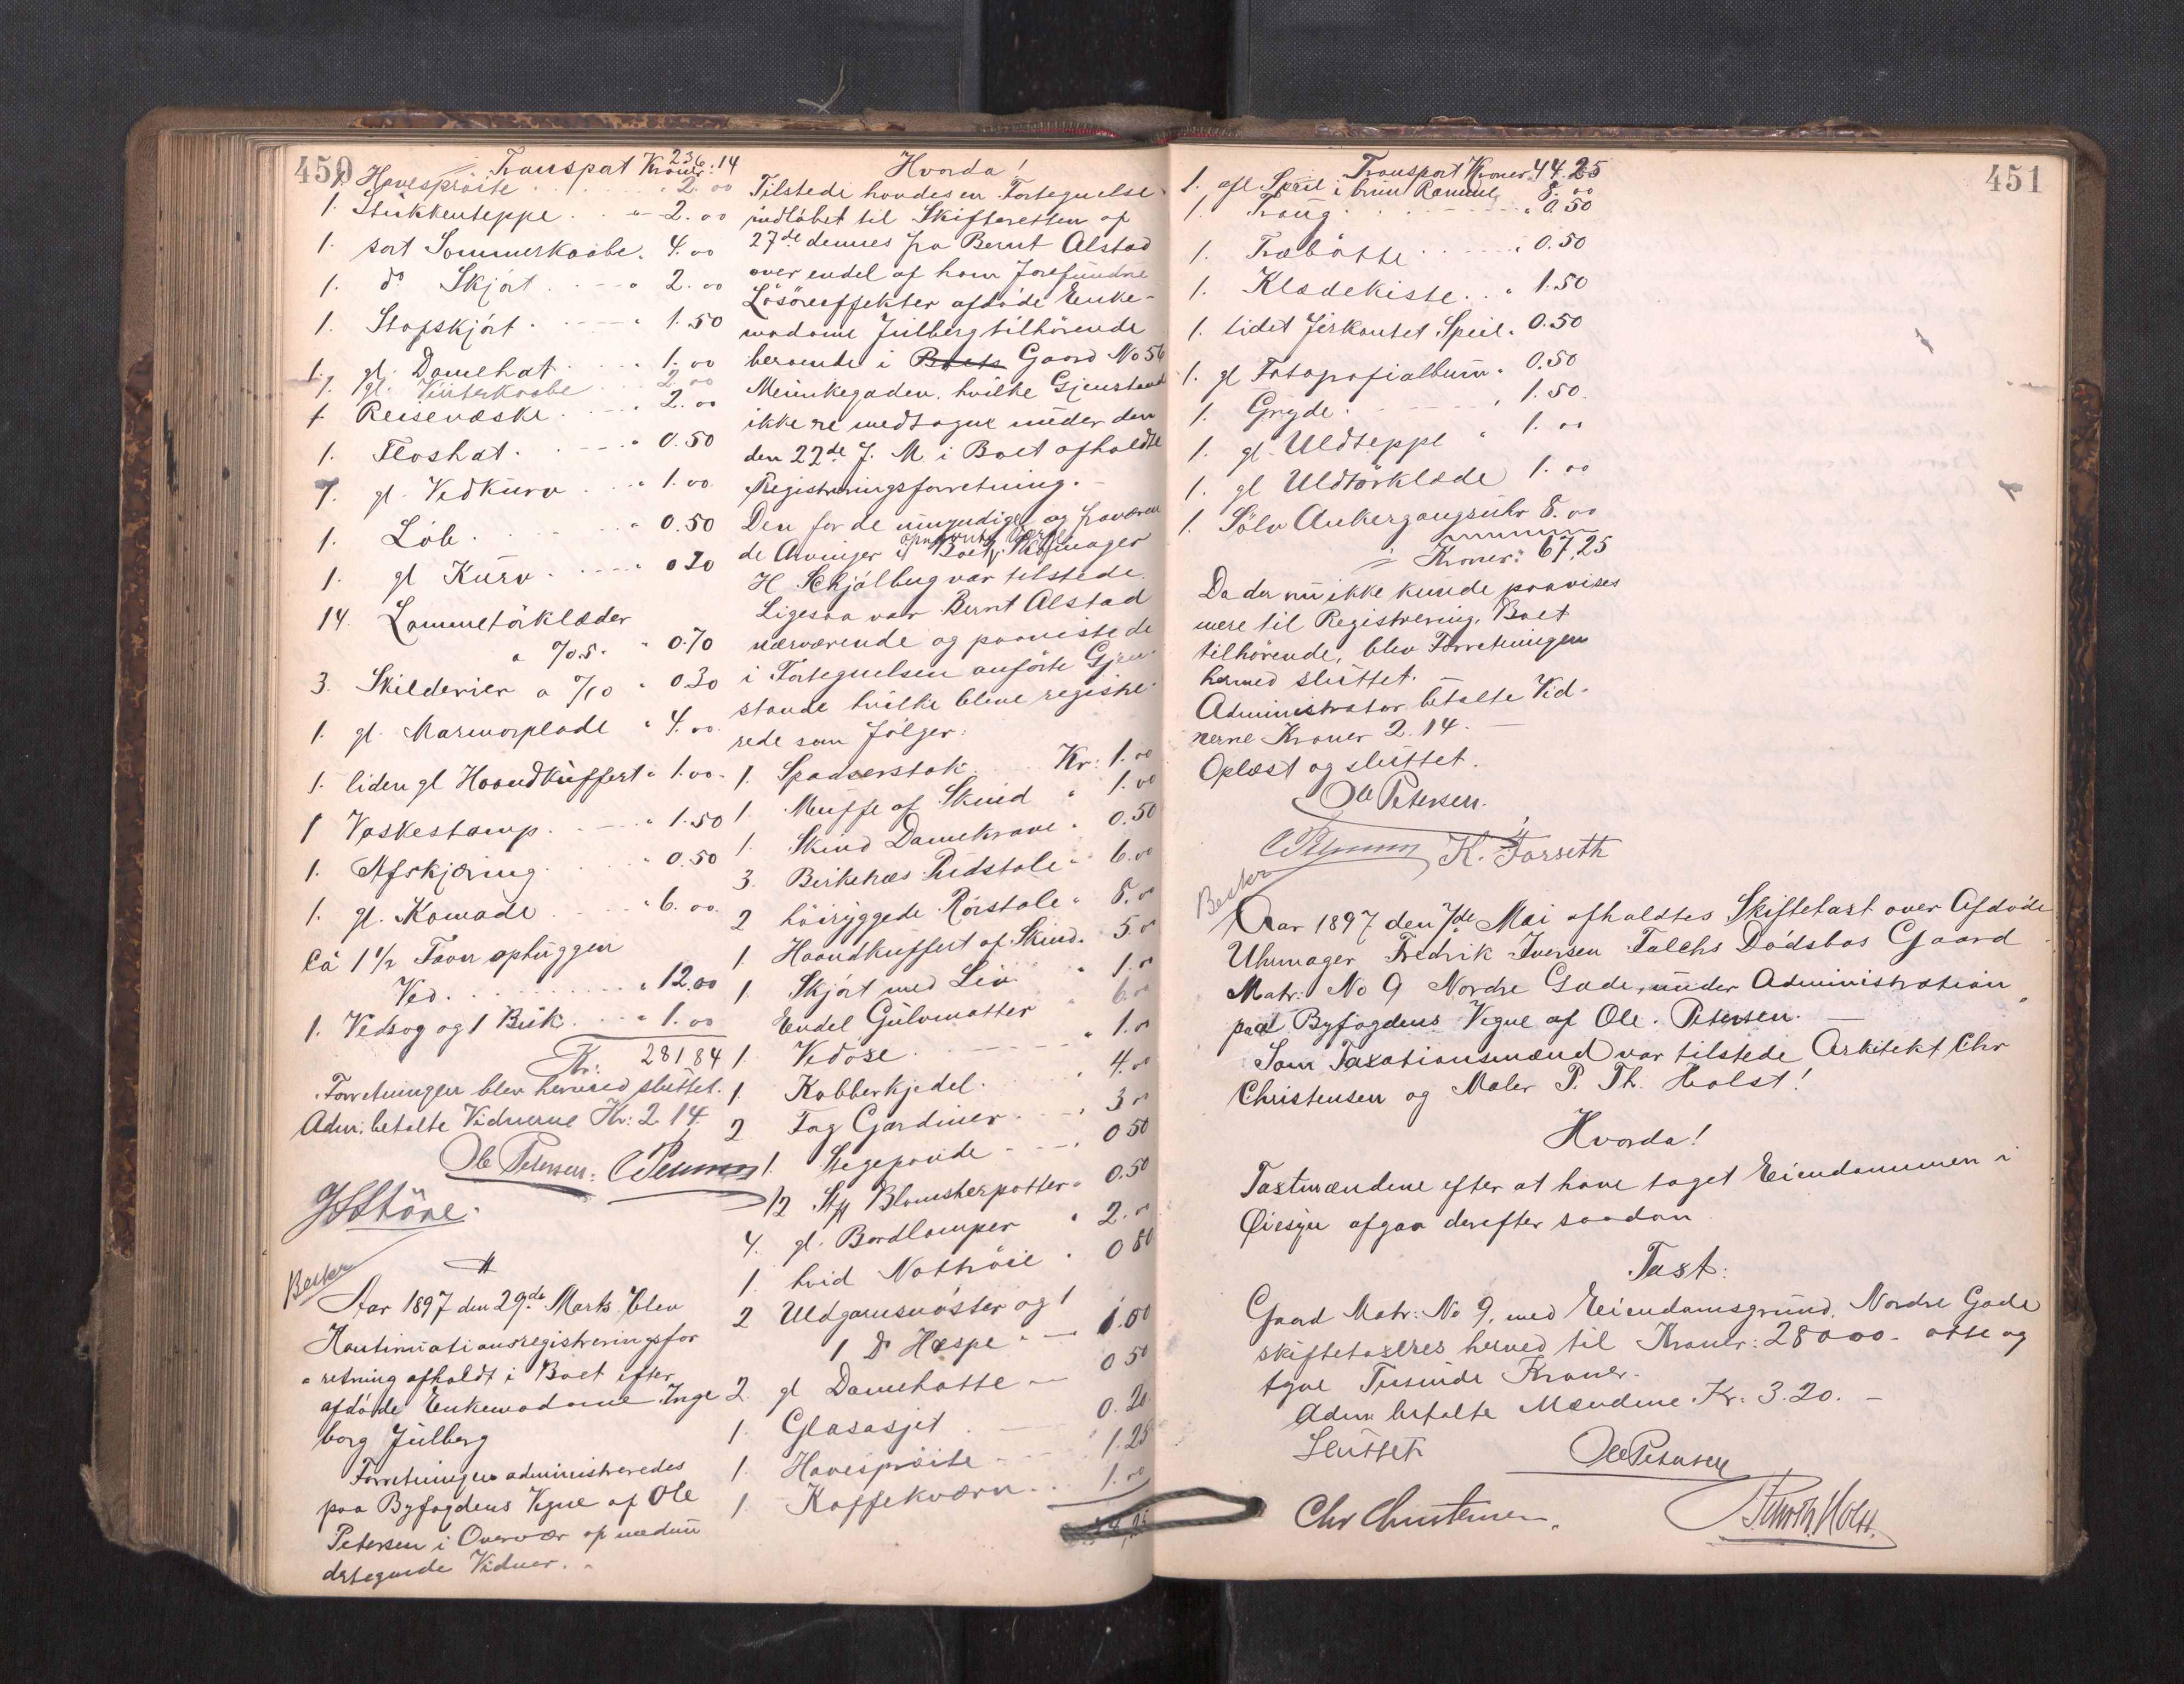 450
Transport Kroner: 236.14
1. Havesprøite 2.00
1. Stukkenteppe 2.00
1. sort Sommerkaabe 4.00
1. do Skjört 2.00
1. Stofskjört 1.50
1. gl. Damehat 1.00
1. gl. Vinterkaabe 2.00
1 Reisevæske 2.00
1. Floshat 0.50
7. gl. Vedkurv 1.00
1. Löb 0.50
1. gl Kurv 0 20
14. Lommetörklæder
a 0/0.5. 0.70
3. Skilderier a 0/10 0.30
1. gl. Marmorplade 4.00
1. liden gl Haandkuffert 1.00
1 Vaskestamp 1.50
1. Afskjæring 0.50
1. gl. Komode 6.00
Ca 1 1/2 Favn ophuggen
Ved 12.00
1. Vedsag og 1 Buk 1.00
Kr: 281 84
Forretningen blev hermed sluttet.
Adm: betalte Vidnerne Kr: 2.14.
Ole Petersen.
Beskr
Aar 1897 den 29de Marts blev
Kontinuationsregistreringsfor
retning afholdt i Boet efter
afdöde Enkemadame Inge
borg Julberg
Forretningen administreredes
paa Byfogdens Vegne af Ole
Petersen i Overvær af nedun
dertegnede Vidner.
Hvorda!
Tilstede havdes en Fortegnelse
indløbet til Skifteretten af
27de dennes fra Bernt Alstad
over endel af ham forefundne
Lösöreeffekter afdöde Enke-
madame Julberg tilhörende
beroende i Boets Gaard No 56
Meinkegaden, hvilke Gjenstande
ikke re medtagne under den
den 22de d. M. i Boet afholdte
Registreringsforretning.
Den for de umyndige og fraværen
de Arvinger i Boet opnævnte Værge Skomager
H Schjölberg var tilstede.
Ligesaa var Bernt Alstad
nærværende og paaviste de
i Fortegnelsen anförte Gjen-
stande hvilke bleve registre-
rede som fölger:
1. Spadserstok Kr: 1.00
1. Muffe af Skind 1.00
1. Skind Damekrave 0.50
3. Birketræs Pudstole 6.00
2 höiryggede Rörstole 8.00
1 Haandkuffert af Skind 5.00
1. Skjört med Liv 1.00
Endel Gulvmatter 6.00
1. Vedøxe 1.00
1. Kobberkjedel 4.00
2 Fag Gardiner 3.00
1. Stegepande 0 50
12 Stk Blomsterpotter 0.50
4. gl. Bordlamper 2.00
1. hvid Nattröie 0 80
2 Uldgarnsnöster og 1
1 Do Hæspe 1.00
2. gl Damehatte 0 50
1. Glasasjet 0.20
1. Havesprøite 1.25
1. Kaffekværn 1.00
451
Transport Kroner 44.25
1. afl. Speil i brun Ramme 8.00
1. Traug 0.50
1. Træbötte 0.50
1. Klædekiste 1.50
1. lidet firkantet Speil 0.50
1. gl Fotografialbum 0.50
1. Gryde 1.50
1. gl. Uldteppe 1.00
1. gl Uldtörklæde 1.00
1. Sölv Ankergangsuhr 8.00
Kroner: 67,25
Da der nu ikke kunde paavises
mere til Registrering, Boet
tilhörende, blev Forretningen
hermed sluttet.
Administrator betalte Vid-
nerne Kroner 2.14.
Oplæst og sluttet.
Ole Petersen.
K. Forseth
Beskr
Aar 1897 den 7de Mai afholdtes Skiftetaxt over Afdöde
Uhrmager Fredrik Iversen Falchs Dödsbos Gaard
Matr: No 9 Nordre Gade, under Administration
paa Byfogdens Vegne af Ole Petersen.
Som Taxationsmænd var tilstede Arkitekt Chr
Christensen og Maler P. Th. Holst!
Hvorda!
Taxtmændene efter at have taget Eiendommen i
Øiesyn afgav derefter saadan
Taxt:
Gaard Matr: No 9, med Eiendomsgrund, Nordre Gade
skiftetaxeres herved til Kroner: 28000 - otte og
tyve Tusinde Kroner.
Adm betalte Mændene Kr. 3.20.
Sluttet
Ole Petersen
Chr Christensen.